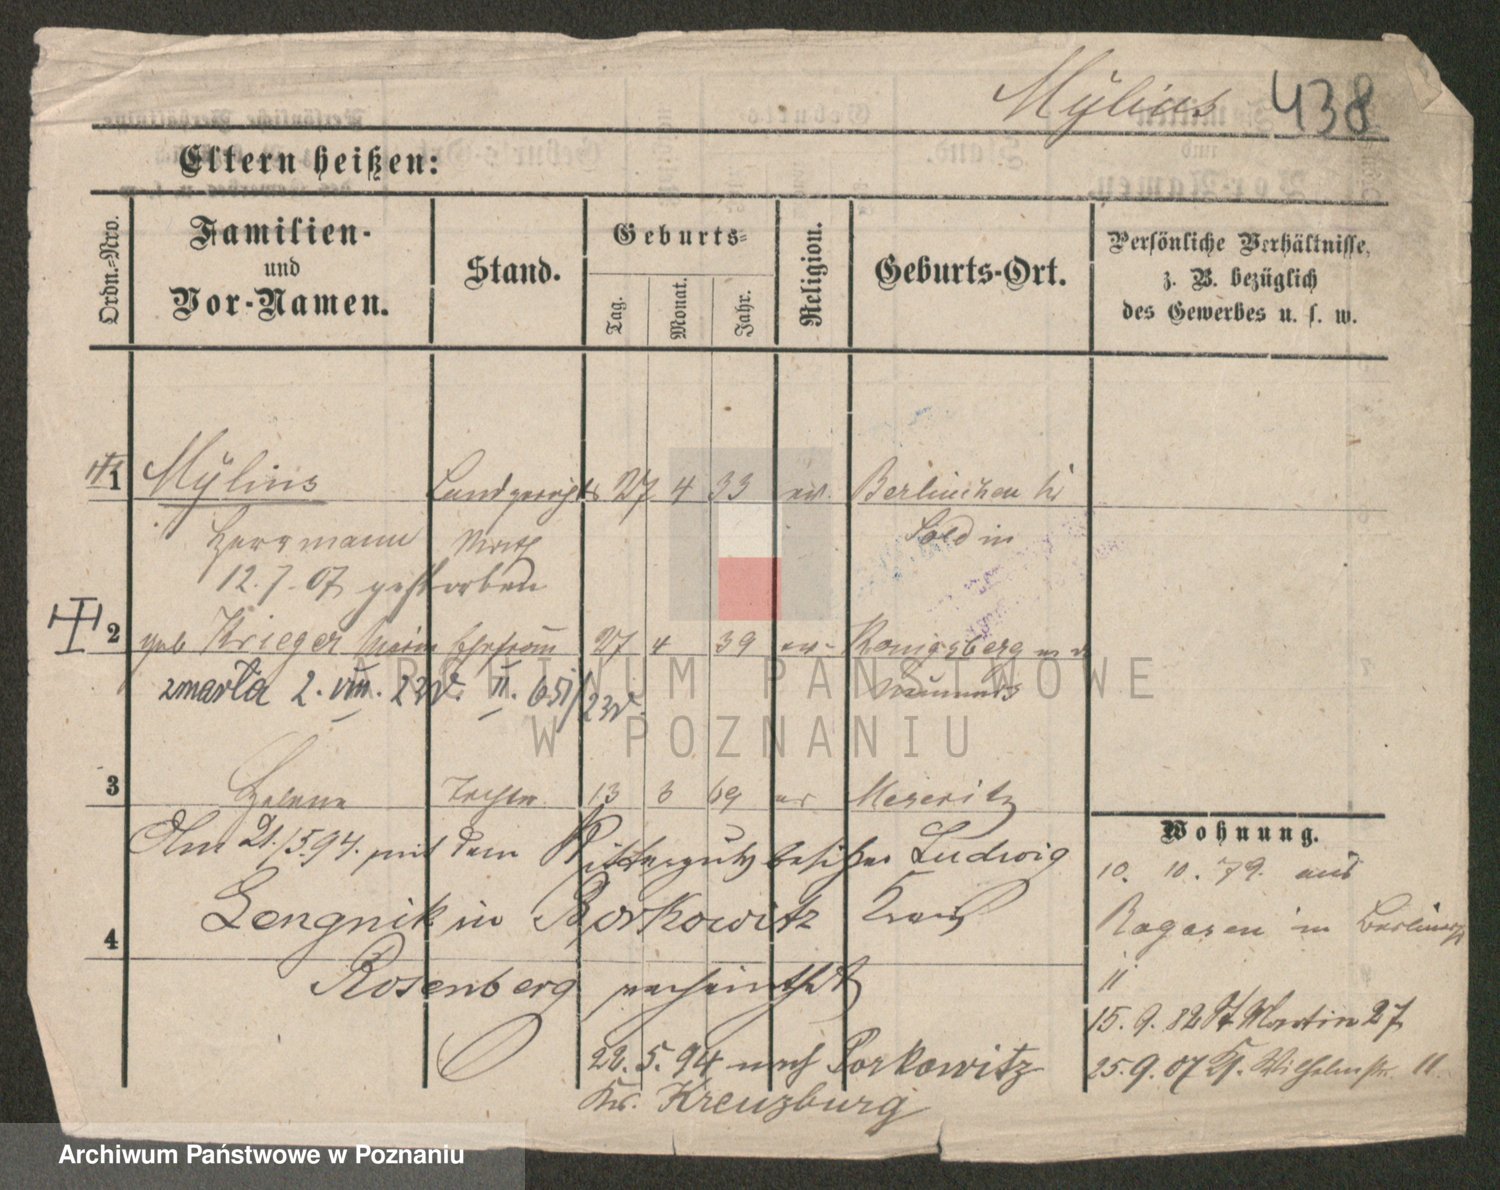 Mylius 438
Eltern heißen:
Ordn.-Nro.
Familien-
und
Vor-Namen.
Stand.
Geburts-
Tag.
Monat.
Jahr.
Religion.
Geburts-Ort.
Persönliche Verhältnisse,
z. B. bezüglich
des Gewerbes u. s. w.
1 Mylius Landgerichts 27 4 33 ev. Berlinchen Kr
Herrmann Soldin
12.7.07 gestorben
2 geb Krieger Marie Ehefrau 27 4 39 ev. Königsberg
zmarła 2. VIII. 23r. II. 651/23r.
3 Helene Tochter 13 69 ev Meseritz
Am 21./5.94. mit dem Rittergutsbesitzer Ludwig
Lengnik in Borkowitz Kreis
4
Rosenberg verheirathet
22.5.94 nach Borkowitz
Kr. Kreuzburg
Wohnung.
10. 10. 79. aus
Rogasen in Berlinerstr
11
15.9.82 St Martin 27
25.9.07 Wilhelmstr. 11
ARCHIWUM PAŃSTWOWE
W POZNANIU
Archiwum Państwowe w Poznaniu